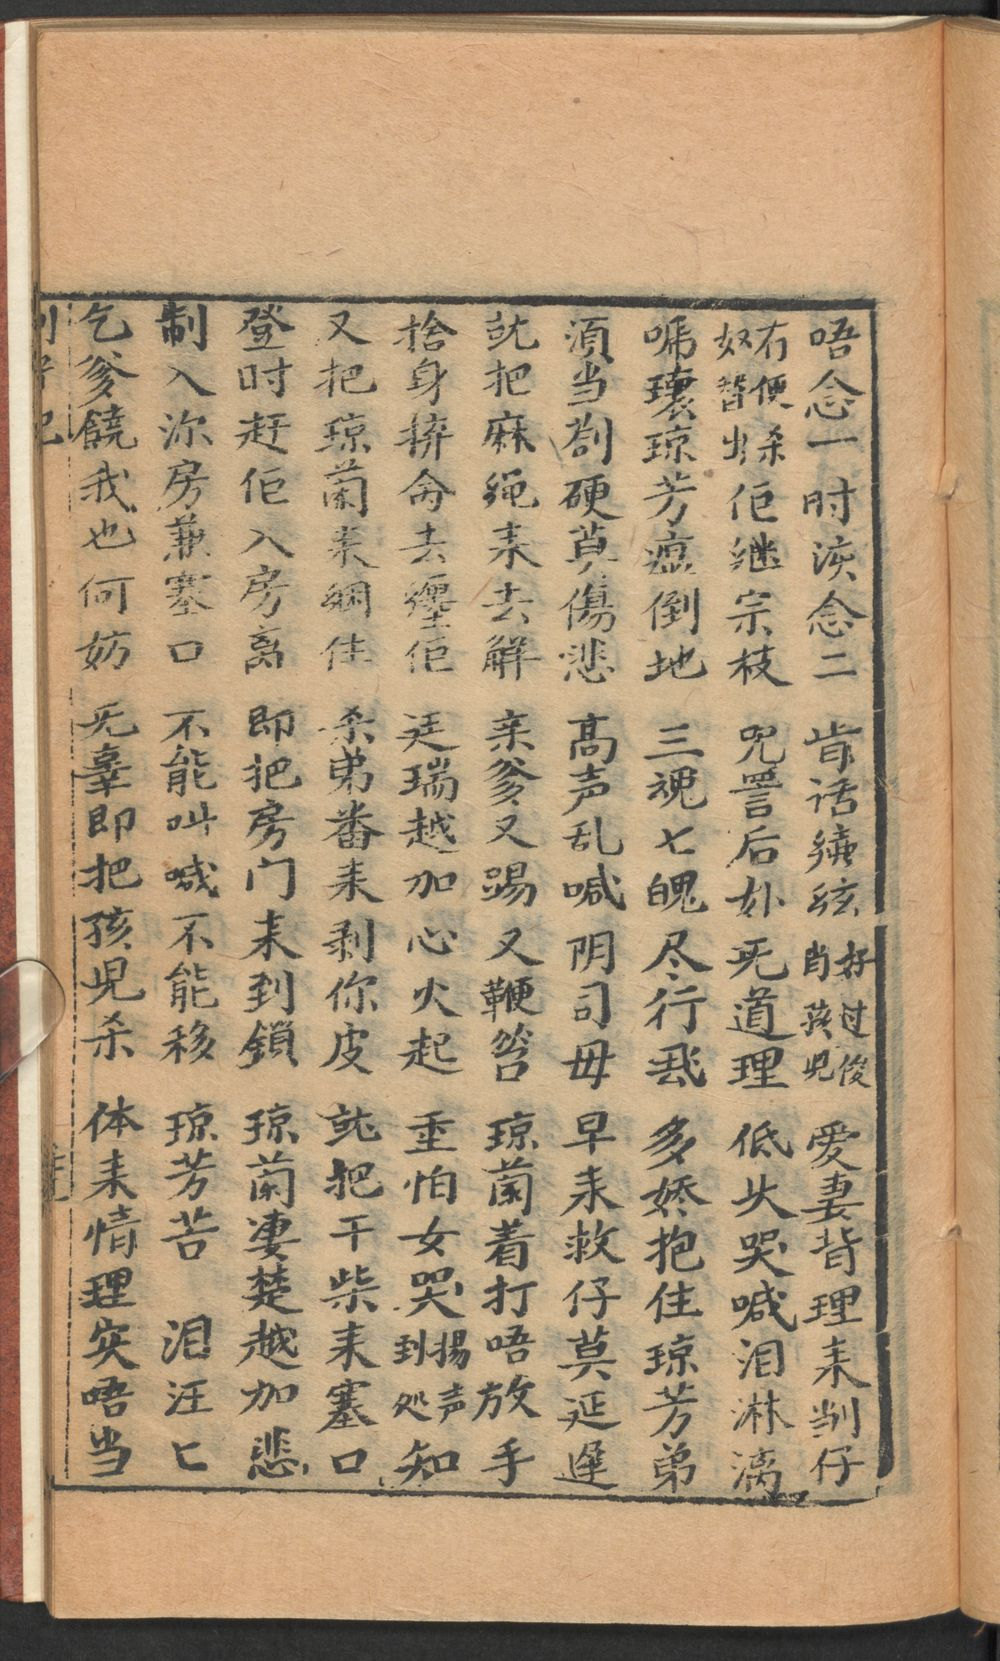 唔念一时渋念二 肯话續弦好过後肖孩児 爱妻背理耒𠜱仔
右便杀奴替出佢継宗枝 咒詈后妚旡道理 低头哭喊泪淋漓
嗎壊琼芳瘟倒地 三魂七魄尽行飛 多娇抱住琼芳弟
須当割硬莫傷悲 高声乱喊阴司毋 早耒救仔莫延遲
就把麻绳耒去解 亲爹又踢又鞭笞 琼蘭着打唔放手
捨身捹命去纏佢 廷瑞越加心火起 重怕女哭揚声到处知
又把琼蘭耒綑住 杀弟番耒剥你皮 就把干柴耒塞口
登时赶佢入房离 即把房门耒到鎖 琼蘭凄楚越加悲
制入沵房兼塞口 不能叫喊不能移 琼芳苦 泪汪匕
乞爹饒我也何妨 旡辜即把孩児杀 体耒情理实唔当